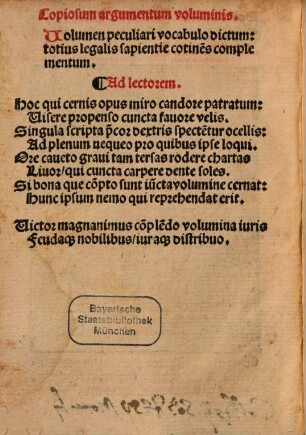 Copiosum argumentum voluminis.
Uolumen peculiari vocabulo dictum:
totius legalis sapientie cōtinēs comple
mentum.
¶Ad lectorem.
Hoc qui cernis opus miro candore patratum:
Uisere propenso cuncta fauore velis.
Singula scripta p̄cor dextris spectētur ocellis:
Ad plenum nequeo pro quibus ipse loqui.
Ore caueto graui tam tersas rodere chartas
Liuor/qui cuncta carpere dente soles.
Si bona que cōpto sunt iūcta volumine cernat:
Hunc ipsum nemo qui reprehendat erit.
Uictor magnanimus cōplēdo volumina iuris
Feudaqꝫ nobilibus/iuraqꝫ distribuo.
Bayerische
Staatsbibliothek
München